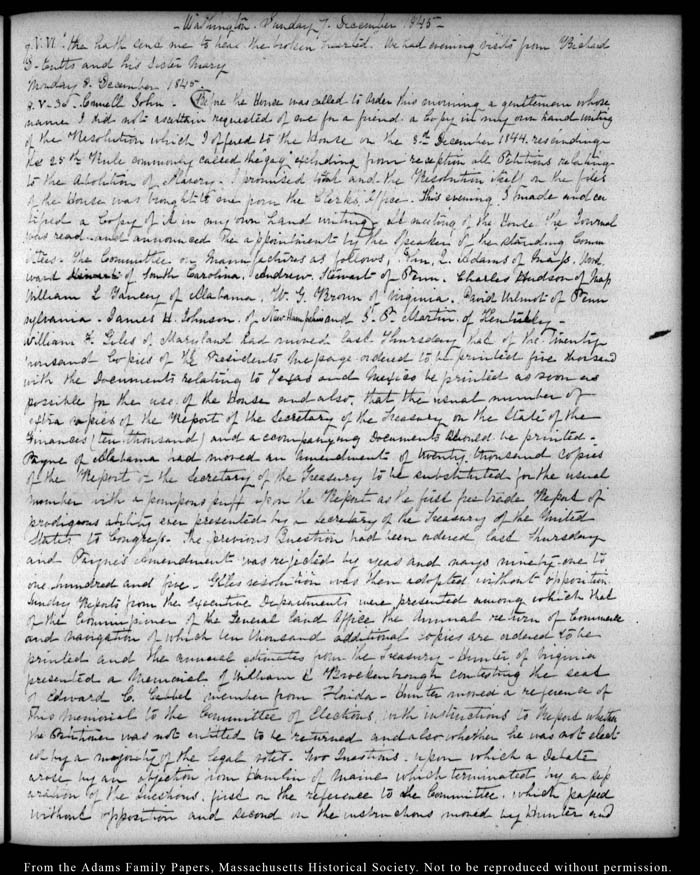 - Washington. Sunday 7. December 1845 -
V. VI. the hath send me to heal the broken hearted. We had evening visits from Richard
D. Cutts and his Sister Mary
Monday 8. December 1845.
V-30. Connell John. Before the House was called to Order this morning a gentleman whose
name I did not ascertain requested of me for a friend a Copy in my own hand writing
of the Resolution which I offered to the House on the 3d. December 1844. rescinding
the 25th Rule commonly called the gag, excluding from reception all Petitions relating
to the Abolition of Slavery. I promised it and the Resolution itself on the files
of the House was brought to me from the Clerks Office. This evening I made and cer
tified a Copy of it in my own hand writing. At meeting of the House The Journal
was read and announced the appointment by the Speaker of the standing Comm
ittees. The Committee on Manufactures as follows, John Q. Adams of Mass. Wood
ward of South Carolina, Andrew Stewart of Penn. Charles Hudson of Mass
William L Yancey of Alabama. W. G. Brown of Virginia. David Wilmot of Penn
sylvania. James H. Johnson of New Hampshire and J. P. Martin of Kentucky -
William F. Giles of Maryland had moved last Thursday that of the Twenty
thousand Copies of the Presidents Message ordered to be printed five thousand
with the Documents relating to Texas and Mexico be printed as soon as
possible for the use of the House and also, that the usual number of
extra copies of the Report of the Secretary of the Treasury on the State of the
Finances (ten thousand) and accompanying Documents should be printed -
Payne of Alabama had moved an Amendment of twenty thousand copies
of the Report of the Secretary of the Treasury to be substituted for the usual
number with a pompous puff upon the Report as the first free trade Report of
prodigious ability ever presented by a Secretary of the Treasury of the United
States to Congress. The previous Question had been ordered last Thursday
and Payne's Amendment was rejected by yeas and nays ninety-one to
one hundred and five. Giles resolution was then adopted without opposition.
Sundry Reports from the Executive Departments were presented among which that
of the Commissioner of the General Land Office the Annual return of Commerce
and navigation of which ten thousand additional copies are ordered to be
printed and the annual estimates from the Treasury - Hunter of Virginia
presented a Memorial of William H Brockenbrough contesting the seat
of Edward C. Cabbel member from Florida - Hunter moved a reference of
this memorial to the Committee of Elections, with instructions to Report whether
the Petitioner was not entitled to be returned and also whether he was not elect
ed by a majority of the legal votes. Two Questions. upon which a Debate
arose by an objection from Hamlin of Maine which terminated by a sep
aration of the Questions. first on the reference to the Committee. which passed
without opposition and second on the instructions moved by Hunter and
From the Adams Family Papers, Massachusetts Historical Society. Not to be reproduced without permission.